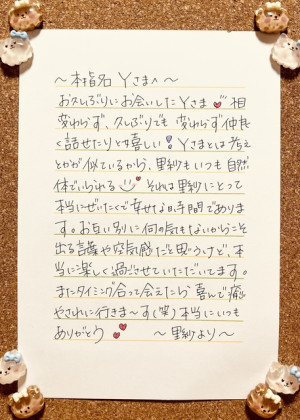 ～本指名 Yさまへ～
お久しぶりにお会いしたYさま 相
変わらず、久しぶりでも 変わらず仲良
く話せたりと嬉しい! Yさまとは考え
とかが似ているから、里紗もいつも自然
体でいられる それは里紗にとって
本当にぜいたくで幸せなお時間でありま
す。お互い別に何の気もないからこそ
出る言葉や空気感だと思うけど、本
当に楽しく過ごさせていただいてます。
またタイミング合って会えたら 喜んで癒
やされに行きま～す(笑)本当にいつも
ありがとう ～里紗より～